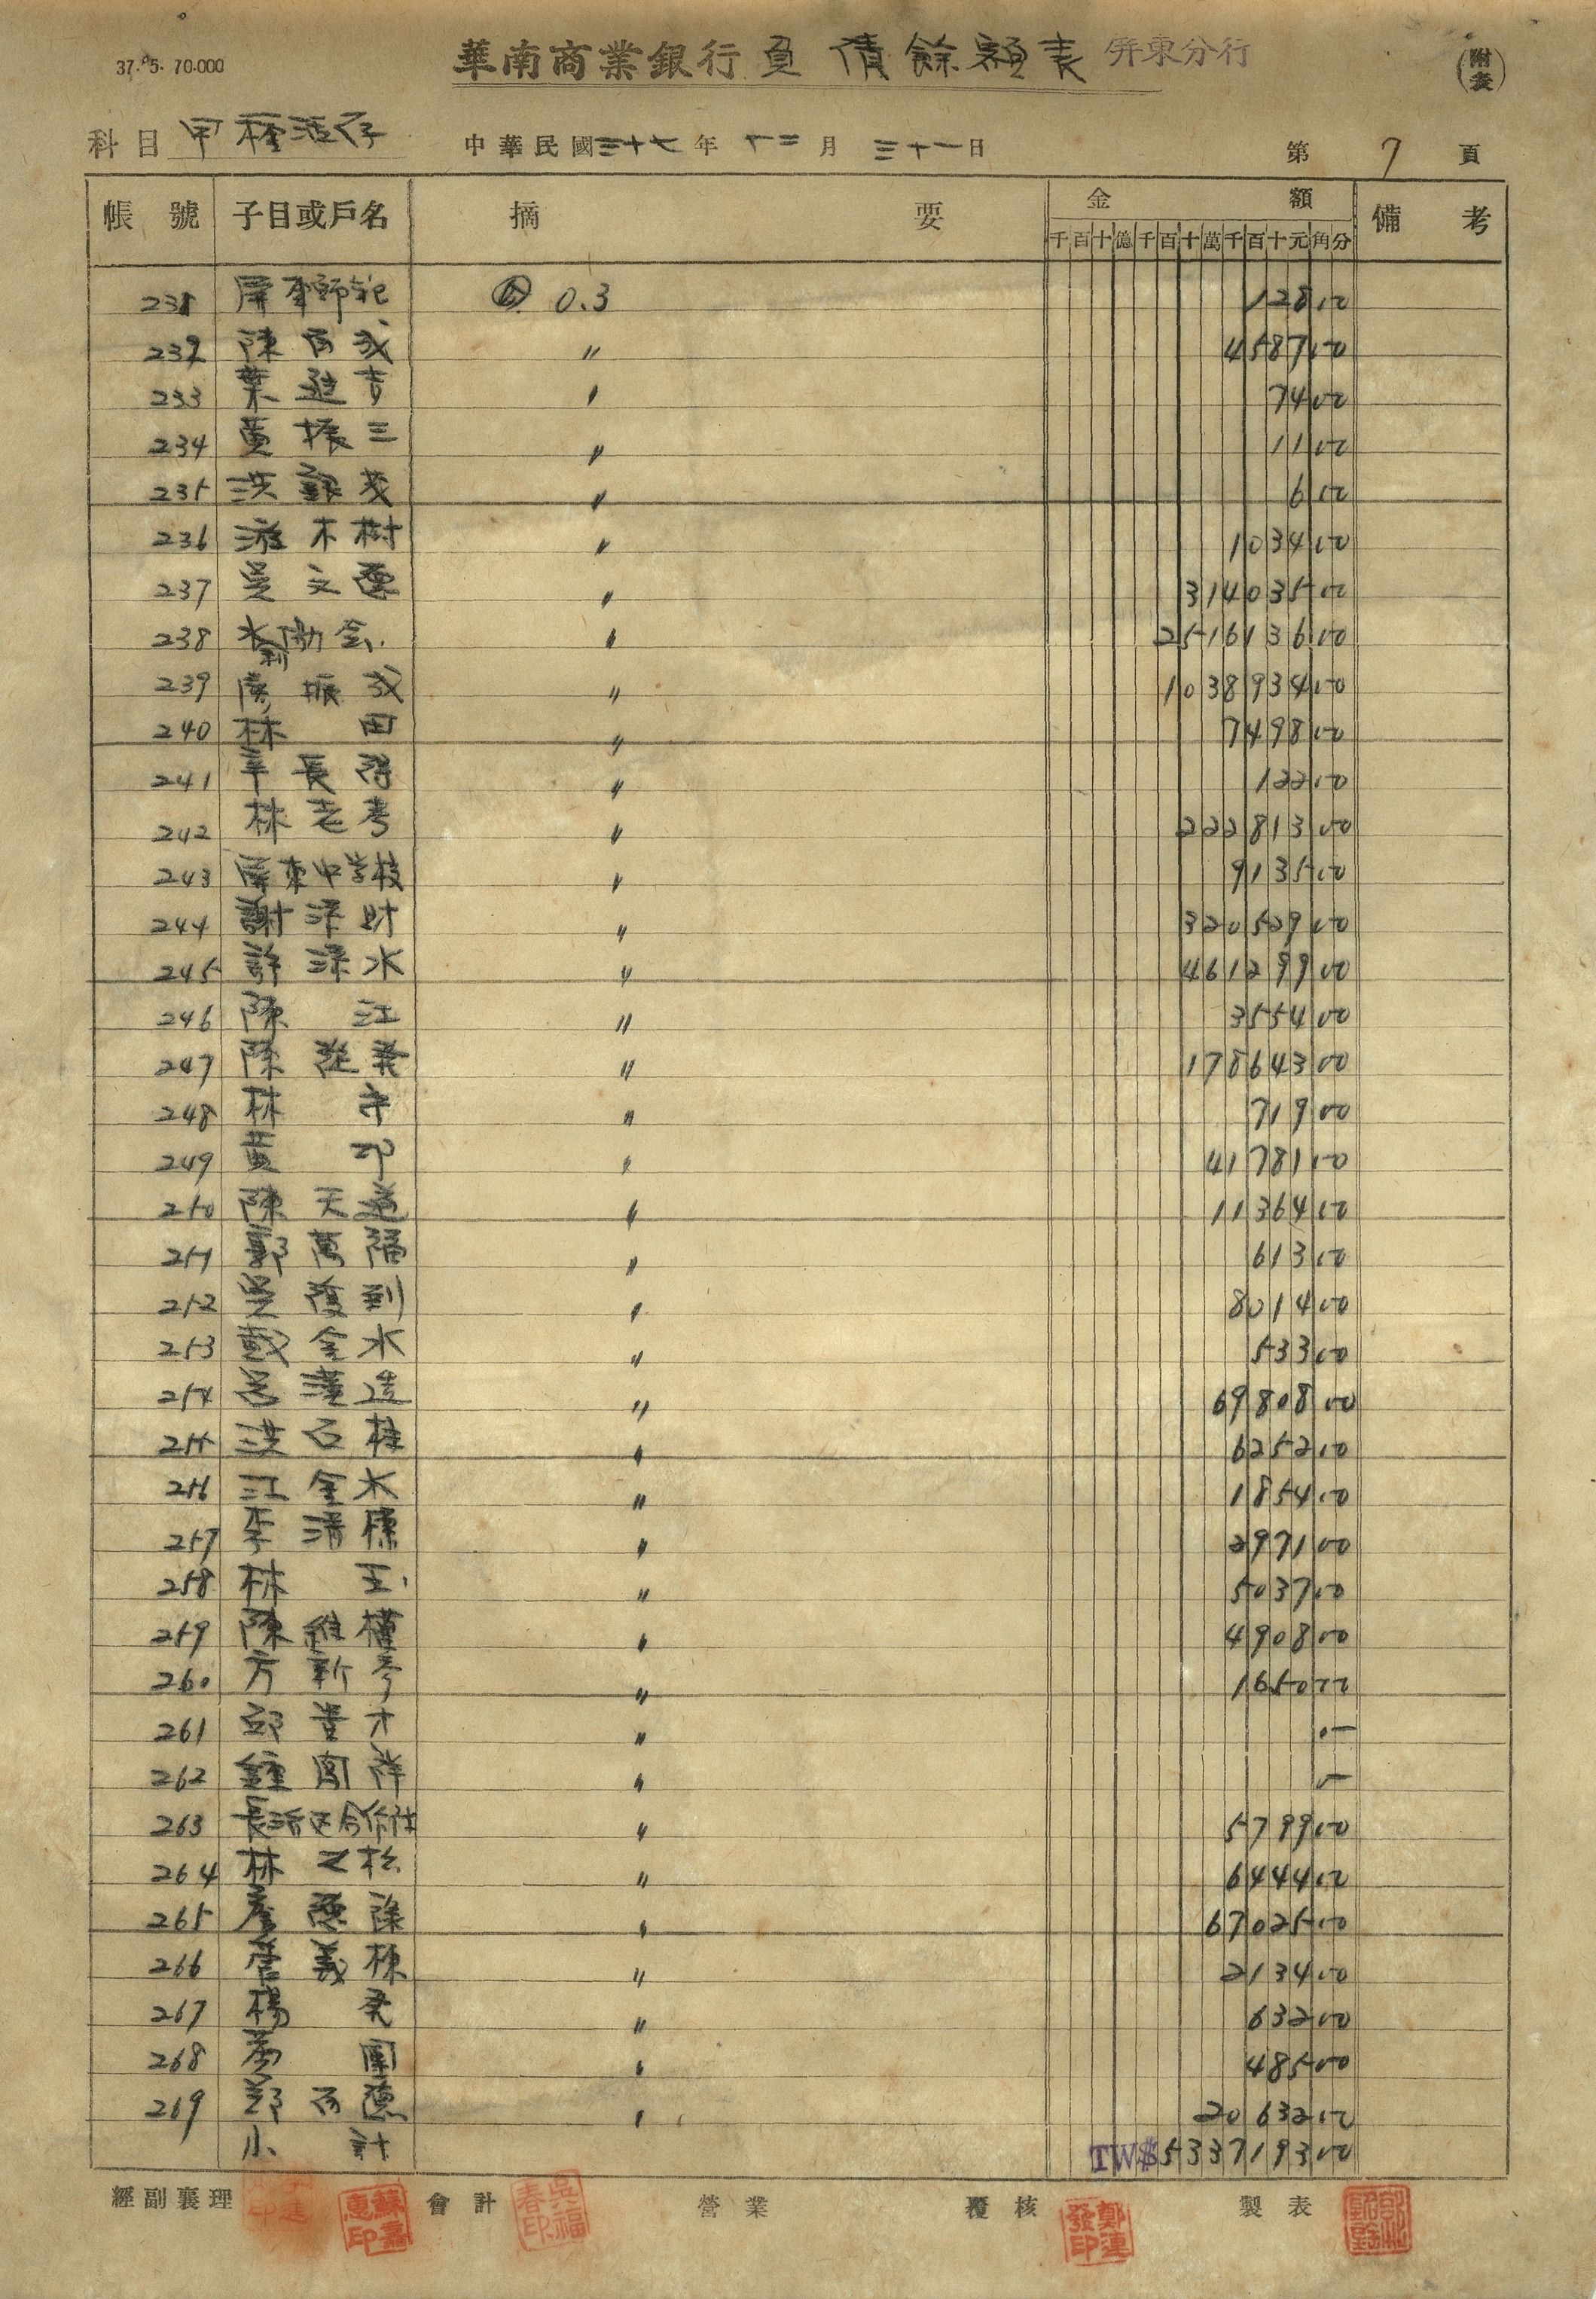 37. 5. 70.000
華南商業銀行負債餘額表 屏東分行
(附表)
科目 甲種活存 中華民國三十七年十二月三十一日 第7頁
帳號 子目或戶名 摘要 金額 備考
千百十億千百十萬千百十元角分
231 屏東師範 0.3 128.00
232 陳百成 〃 4587.00
233 葉進吉 〃 74.00
234 黃振三 〃 11.00
235 洪 茂 〃 6.00
236 游木樹 〃 1034.00
237 吳文 〃 314035.00
238 水利協会 〃 2516136.00
239 振成 〃 1038934.00
240 林田 〃 7498.00
241 辛長得 〃 122.00
242 林老考 〃 222813.00
243 屏東中学校 〃 9135.00
244 謝添財 〃 320529.00
245 許添水 〃 461299.00
246 陳江 〃 3554.00
247 陳 發 〃 178643.00
248 林 〃 719.00
249 黃印 〃 41781.00
250 陳天道 〃 11364.00
251 郭萬福 〃 613.00
252 吳復到 〃 8014.00
253 戴金水 〃 533.00
254 呂漢造 〃 69808.00
255 洪石柱 〃 6252.00
256 江金水 〃 1854.00
257 李清標 〃 2971.00
258 林玉 〃 5037.00
259 陳維權 〃 4908.00
260 方新 〃 1650.00
261 邱貴才 〃 0—
262 鍾 祥 〃 0—
263 長治区合作社 〃 5799.00
264 林之松 〃 6444.00
265 詹德隆 〃 67025.00
266 管義棟 〃 2134.00
267 楊 〃 632.00
268 團 〃 485.00
269 鄭百德 〃 20632.00
小計 TW$5337193.00
經副襄理 蘇嘉惠印 會計 吳福春印 營業 覆核 鄭連發印 製表